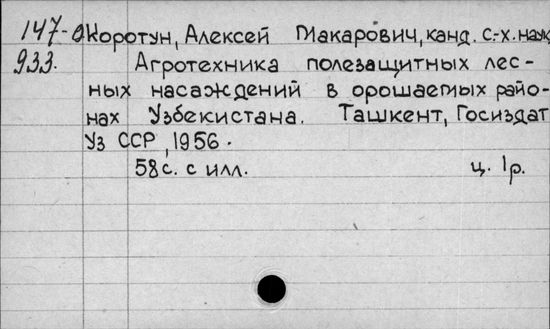 147-0 Коротун, Алексей Макарович, канд. с.-х. наук
933. Агротехника полезащитных лес-
ных насаждений в орошаемых райо-
нах Узбекистана. Ташкент, Госиздат
Уз ССР, 1956.
58 с. с илл. ц. 1 р.